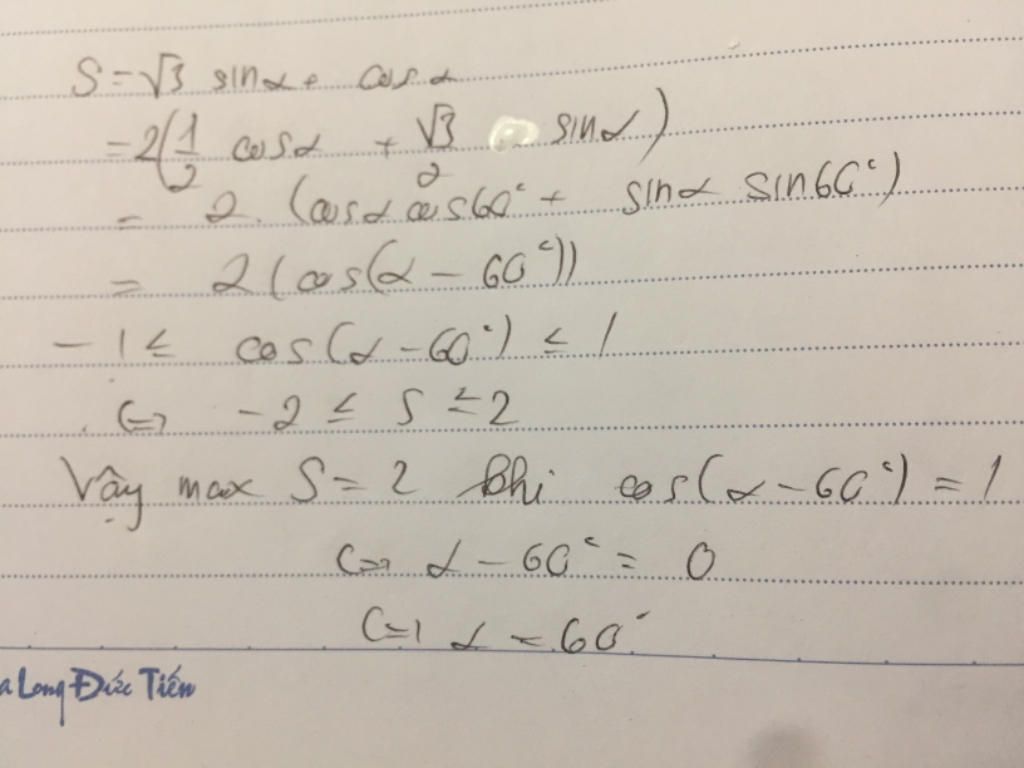 S = √3 sinα + cosα
= 2(1/2 cosα + √3/2 sinα)
= 2. (cosα cos60° + sinα sin60°)
= 2(cos(α - 60°))
-1 ≤ cos(α - 60°) ≤ 1
<=> -2 ≤ S ≤ 2
Vậy max S = 2 khi cos(α - 60°) = 1
<=> α - 60° = 0
<=> α = 60°
a Long Đức Tiến